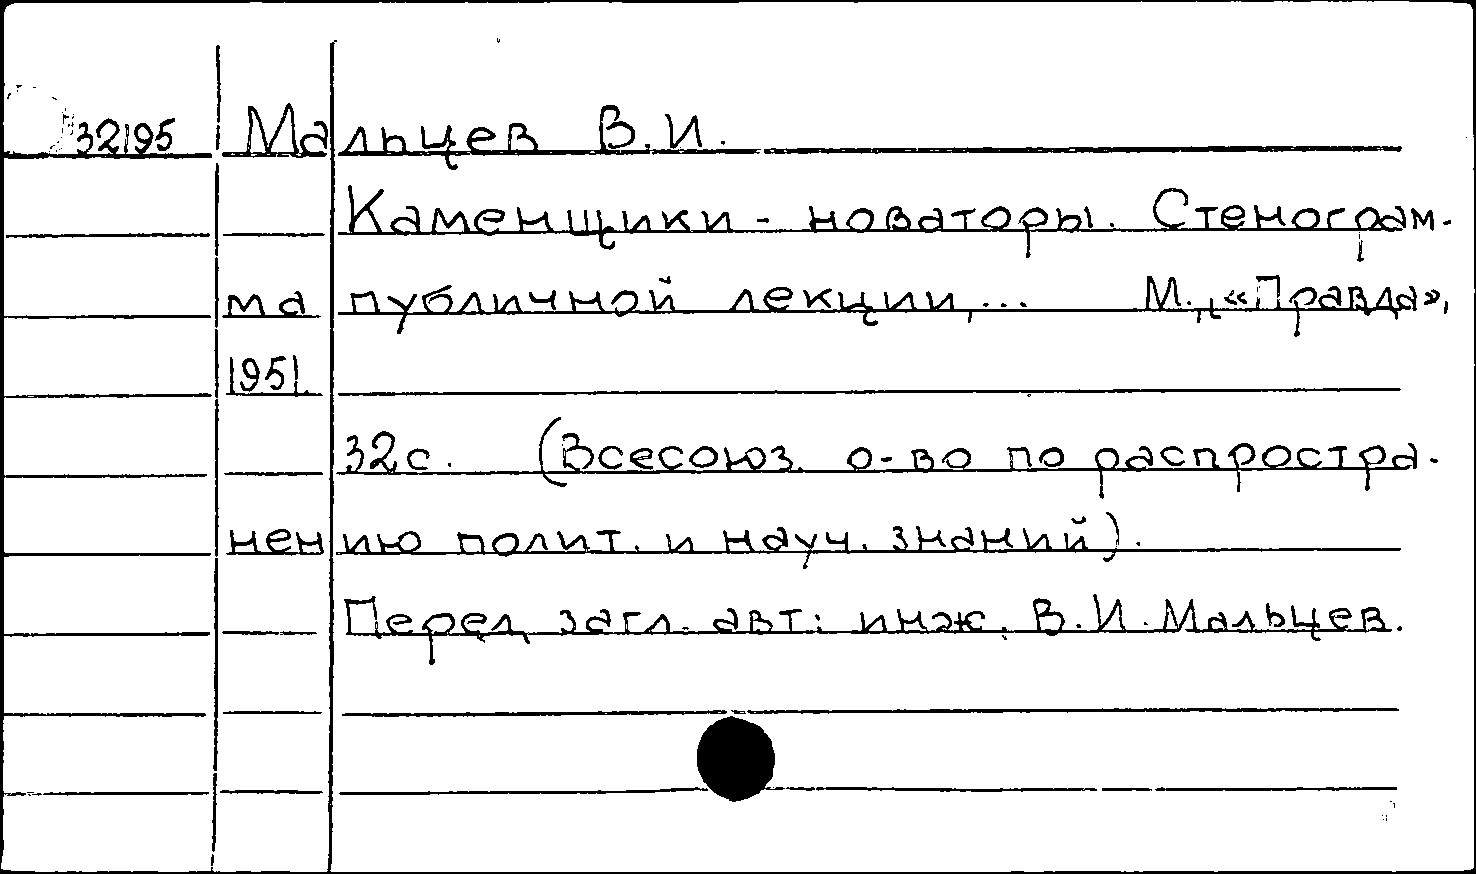 32195 Мальцев В.И.
Каменщики - новаторы. Стенограм-
ма публичной лекции,... М., «Правда»,
1951.
32с. (Всесоюз. о-во по распростра-
нению полит. и науч. знаний).
Перед загл. авт: инж. В.И. Мальцев.